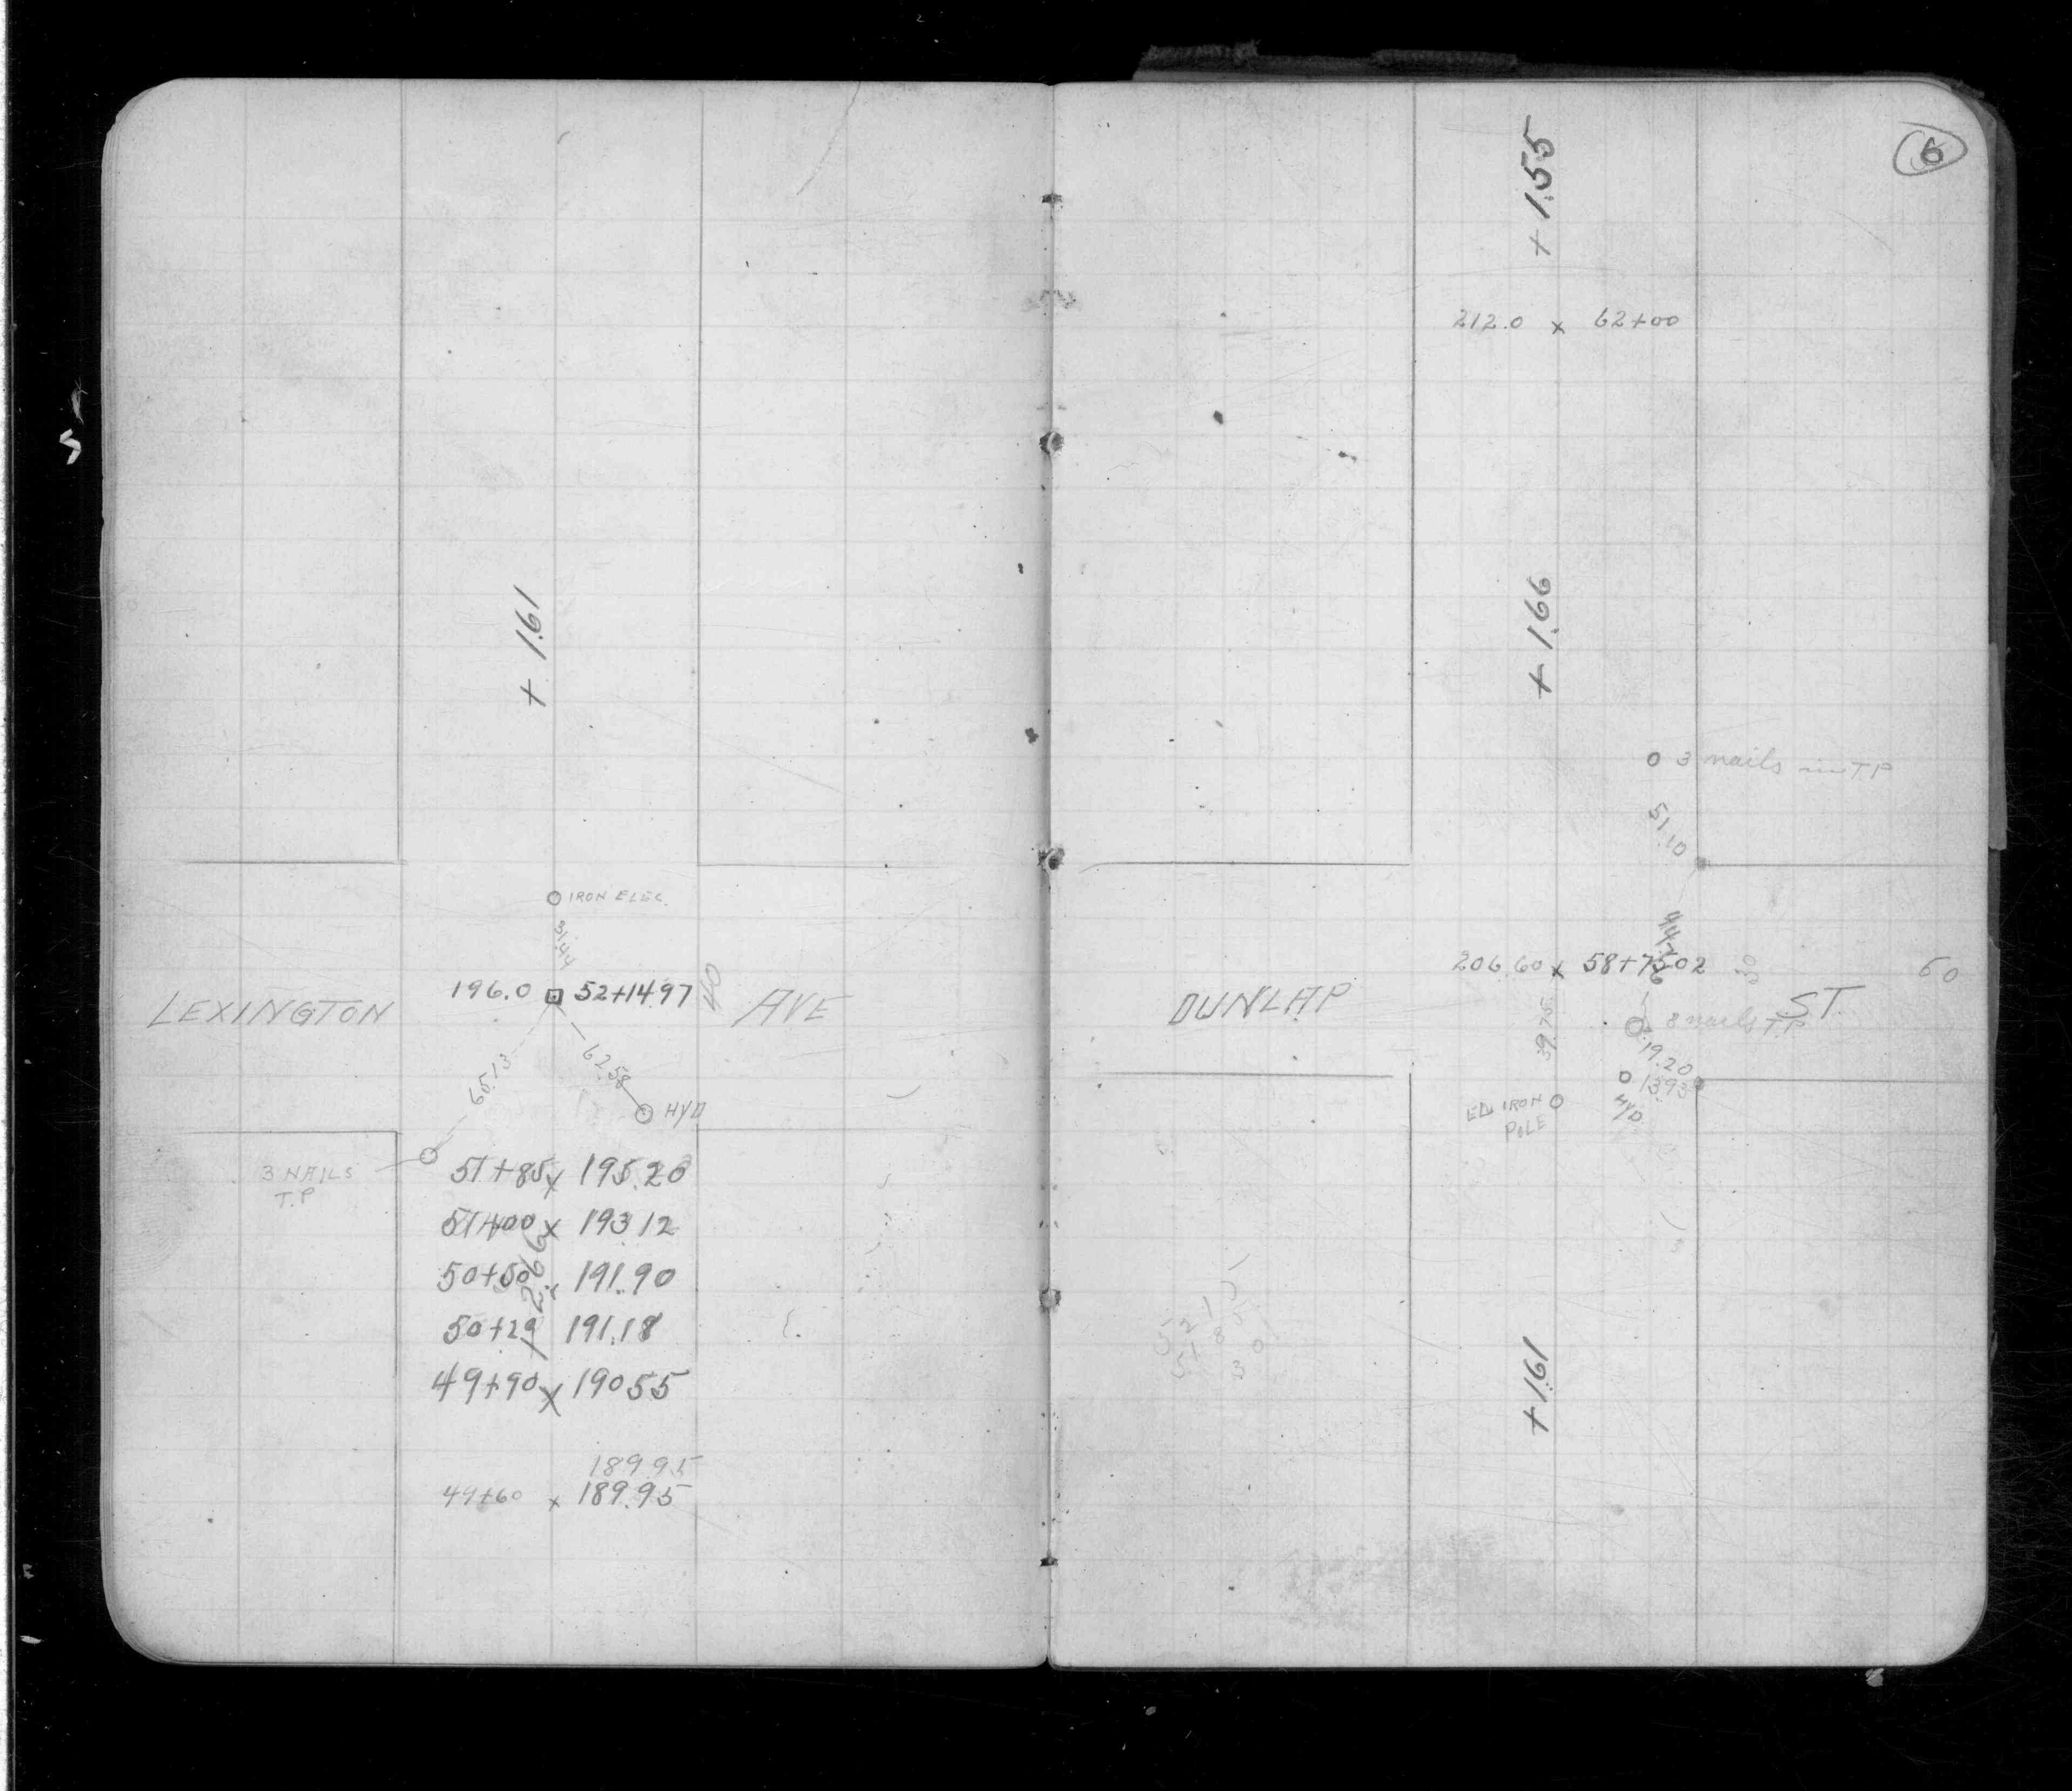 + 1.61
IRON ELEC.
31.44
196.0 52+14.97
40
LEXINGTON AVE
65.13
62.58
HYD
3 NAILS
T.P
51+85 x 195.20
51+00 x 193.12
50+50 x 191.90
+ 2.66
50+29 191.18
49+90 x 190.55
189.95
49+60 x 189.95
6
+ 1.55
212.0 x 62+00
+ 1.66
3 nails in TP
51.10
206.60 x 58+75.02
30
60
DUNLAP ST.
39.75
8 nails T.P.
19.20
13.93
HYD
IRON
POLE
5 2 1
5 1 8 5
3 0
+ 1.61